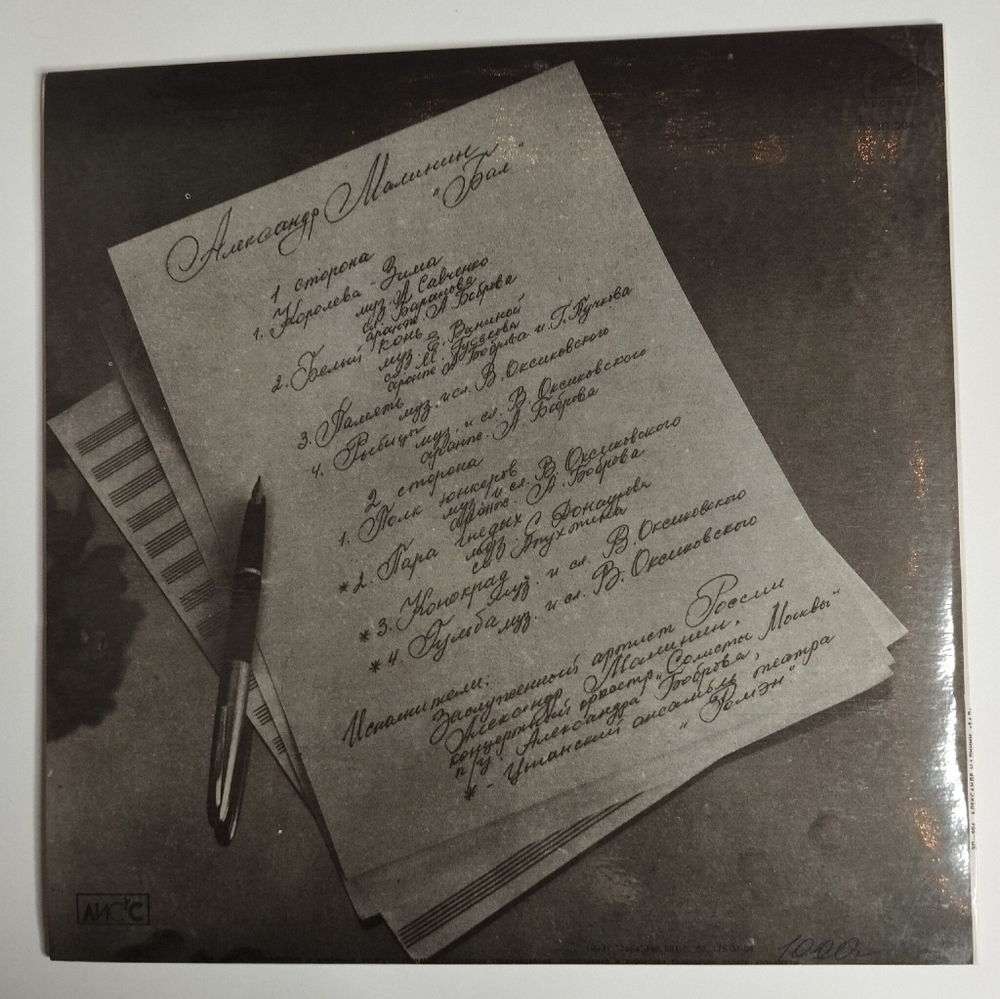 Александр Малинин
"Бал"
1 сторона
1. Королева-Зима
муз. А. Савченко
сл. Баранова
аранж. А. Боброва
2. Белый конь
муз. Е. Ваниной
сл. М. Гуськова
аранж. А. Боброва и Г. Пучкова
3. Память
муз. и сл. В. Оксиковского
4. Рыбицы
муз. и сл. В. Оксиковского
аранж. А. Боброва
2 сторона
1. Полк юнкеров
муз. и сл. В. Оксиковского
аранж. А. Боброва
* 2. Пара гнедых
муз. С. Донаурова
сл. Апухтина
* 3. Конокрад
муз. и сл. В. Оксиковского
* 4. Гульба
муз. и сл. В. Оксиковского
Исполнители:
Заслуженный артист России
Александр Малинин,
концертный оркестр "Солисты Москвы"
п/у Александра Боброва,
* - Цыганский ансамбль театра
"Ромэн"
ЛИС'С
1000